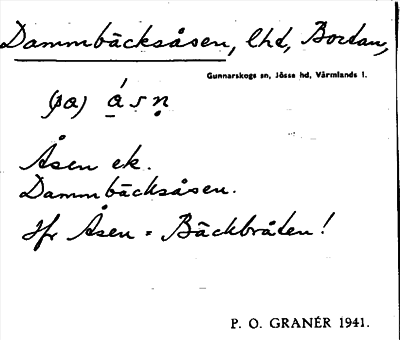 Dammbäcksåsen, lhd, Bortan,
Gunnarskogs sn, Jösse hd, Värmlands l.
(på) åsn
Åsen ek.
Dammbäcksåsen.
Jfr Åsen = Bäckbråten!
P. O. GRANÉR 1941.